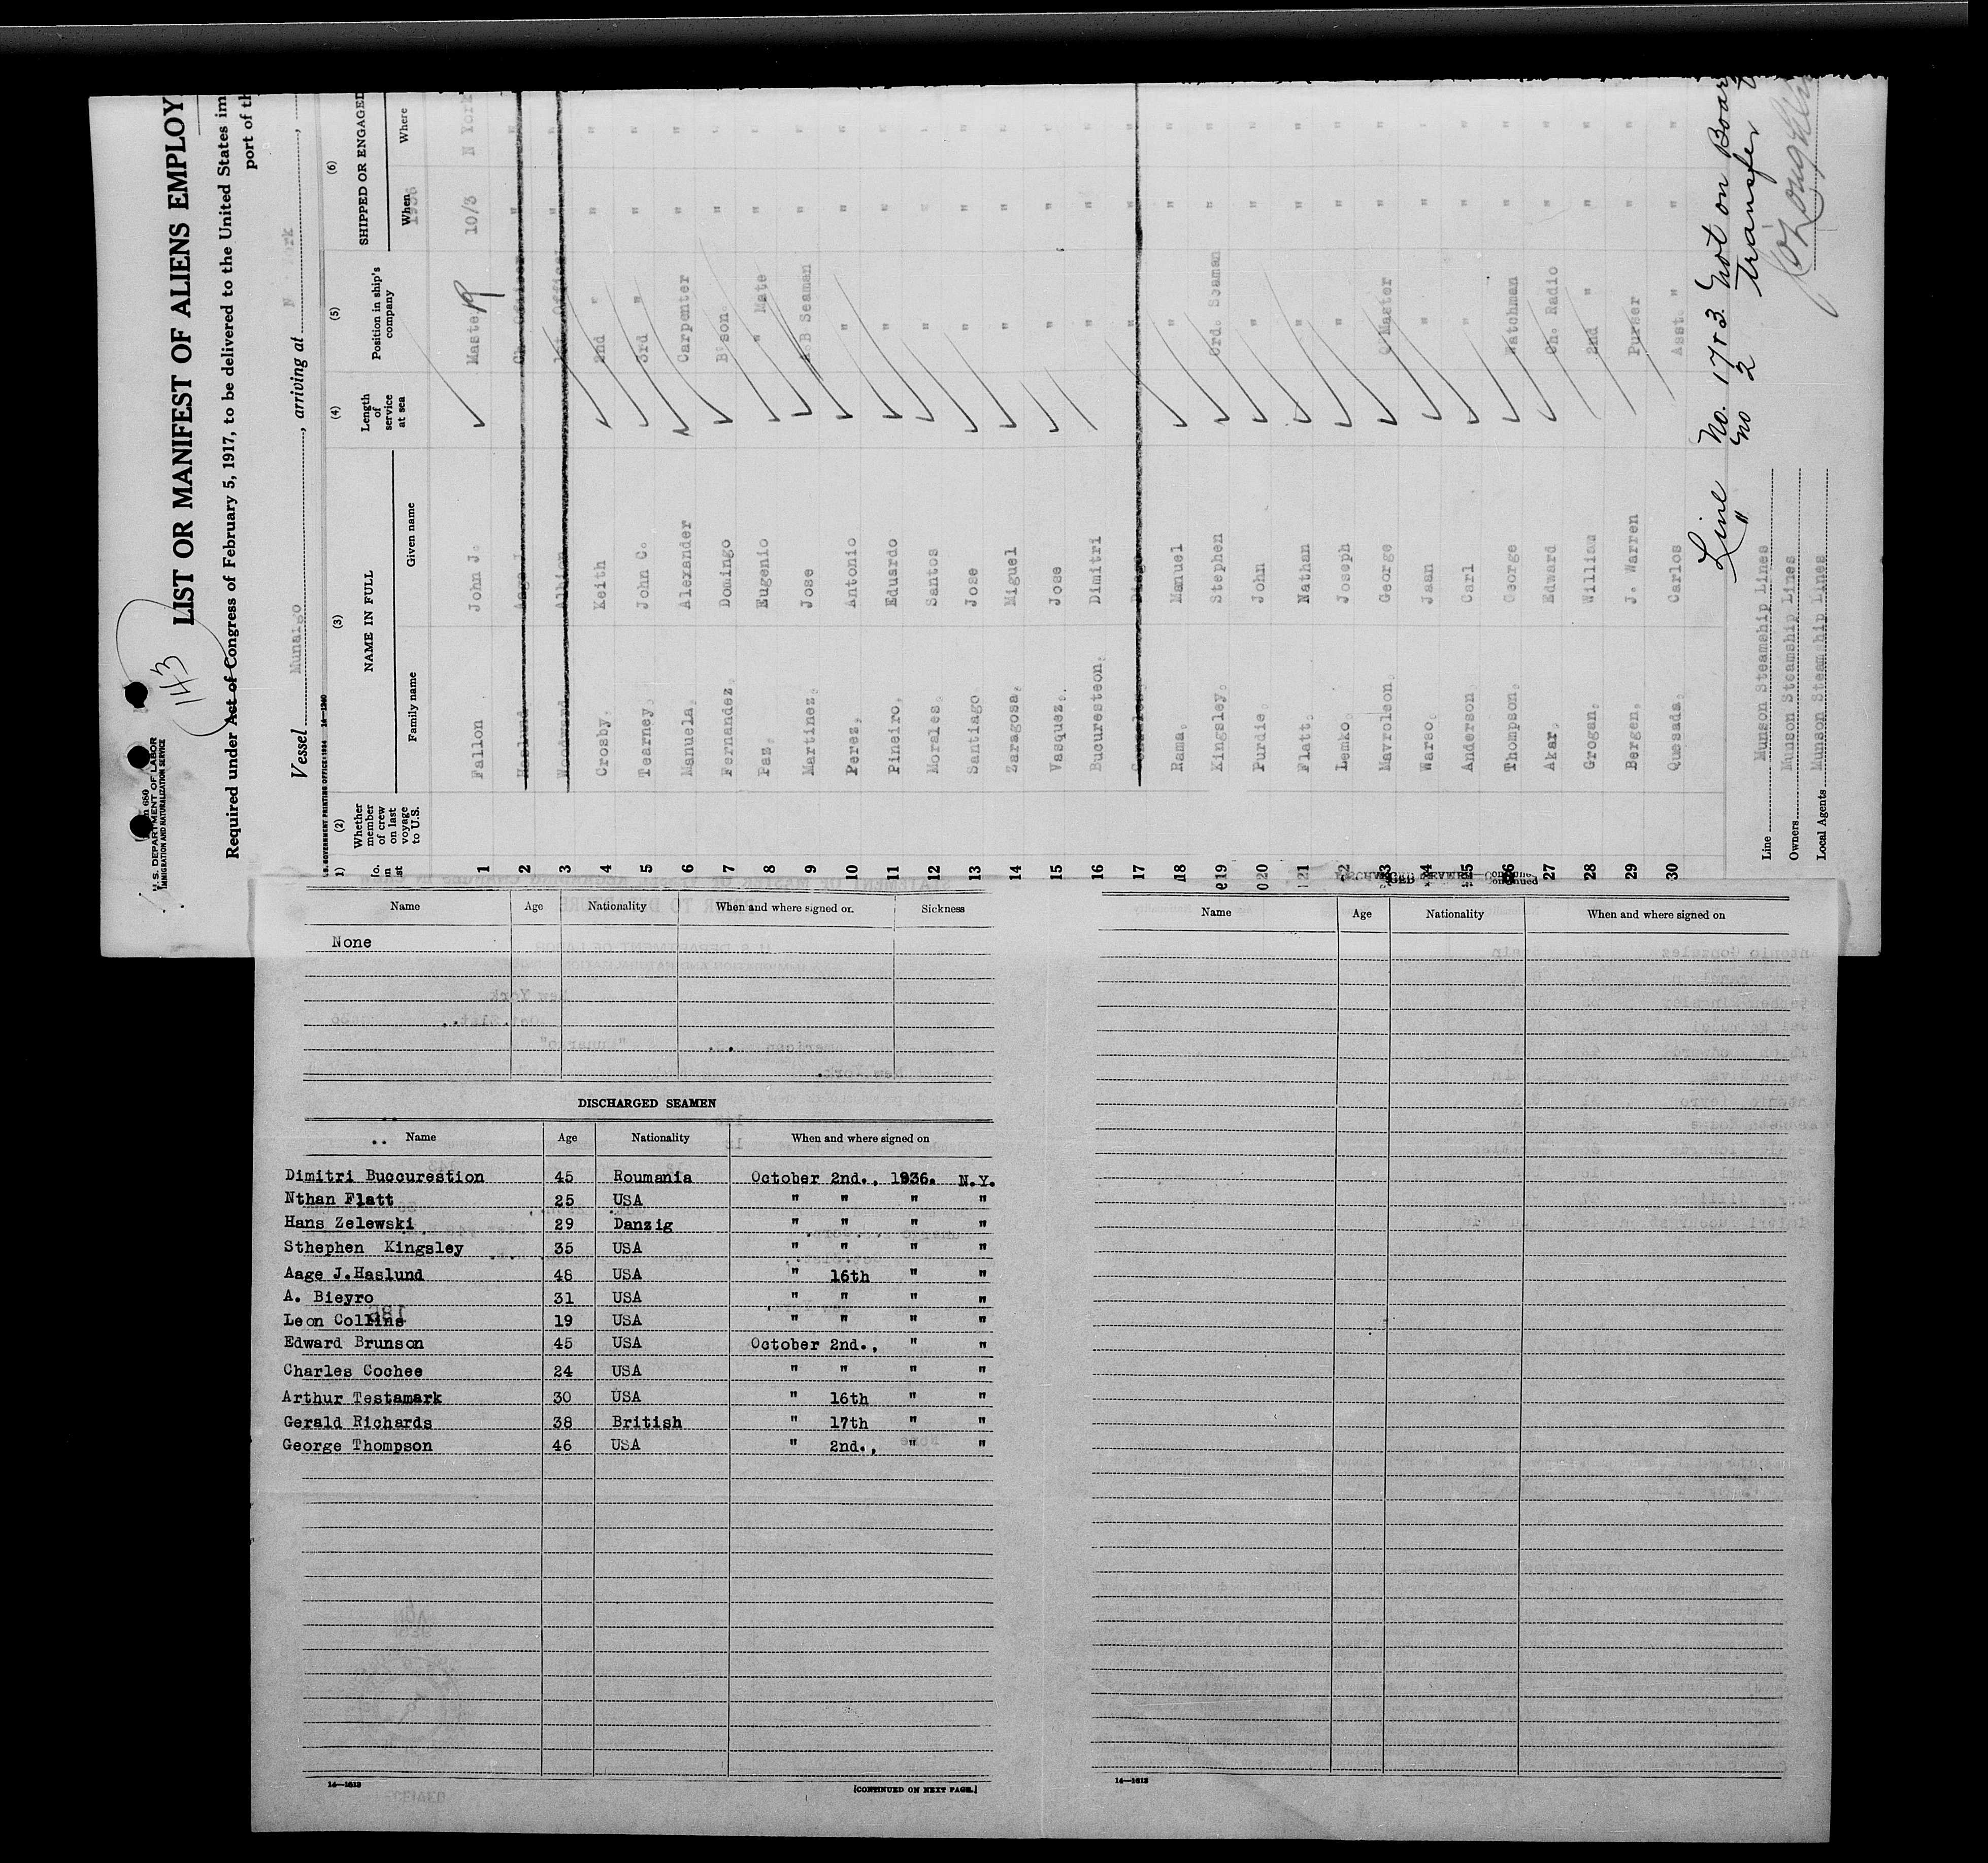 143
LIST OR MANIFEST OF ALIENS EMPLOY
U.S. DEPARTMENT OF LABOR
IMMIGRATION AND NATURALIZATION SERVICE
Required under Act of Congress of February 5, 1917, to be delivered to the United States im
port of th
Vessel Munargo, arriving at
U.S. GOVERNMENT PRINTING OFFICE: 1934
(2) (3) (4) (5) (6)
Whether member of crew on last voyage to U.S. NAME IN FULL Length of service at sea Position in ship's company SHIPPED OR ENGAGED
Family name Given name When Where
1936
1 Fallon John J. Master 10/3 N York
2 Haslund Aage J. Ch. Officer " "
3 Woodward Albion 1st Officer " "
4 Crosby, Keith 2nd " " "
5 Tearney, John C. 3rd " " "
6 Manuela, Alexander Carpenter " "
7 Fernandez. Domingo B'son. " "
8 Paz. Eugenio " Mate " "
9 Martinez. Jose A B Seaman " "
10 Perez, Antonio " " "
11 Pineiro, Eduardo " " "
12 Morales. Santos " " "
13 Santiago Jose " " "
14 Zaragosa. Miguel " " "
15 Vasquez. Jose " " "
16 Bucuresteon. Dimitri " " "
17 Gonzales. " " "
18 Rama. Manuel " " "
19 Kingsley. Stephen Ord. Seaman " "
20 Purdie. John " " "
21 Flatt. Nathan " " "
22 Lemko. Joseph " " "
23 Mavroleon. George Q Master " "
24 Warso. Jaan " " "
25 Anderson. Carl " " "
26 Thompson. George Watchman " "
27 Akar. Edward Ch. Radio " "
28 Grogan. William 2nd " " "
29 Bergen. J. Warren Purser " "
30 Quesada. Carlos Asst. " " "
Line No. 17 & 3 Not on Boar
" No 2 transfer
Line Munson Steamship Lines
Owners Munson Steamship Lines
Local Agents Munson Steamship Lines
Name Age Nationality When and where signed on Sickness
None
DISCHARGED SEAMEN
Name Age Nationality When and where signed on
Dimitri Buccurestion 45 Roumania October 2nd., 1936. N.Y.
Nthan Flatt 25 USA " " " "
Hans Zelewski 29 Danzig " " " "
Sthephen Kingsley 35 USA " " " "
Aage J.Haslund 48 USA " 16th " "
A. Bieyro 31 USA " " " "
Leon Collins 19 USA " " " "
Edward Brunson 45 USA October 2nd., " "
Charles Cochee 24 USA " " " "
Arthur Testamark 30 USA " 16th " "
Gerald Richards 38 British " 17th " "
George Thompson 46 USA " 2nd., " "
14—1613
[CONTINUED ON NEXT PAGE.]
Name Age Nationality When and where signed on
14—1613